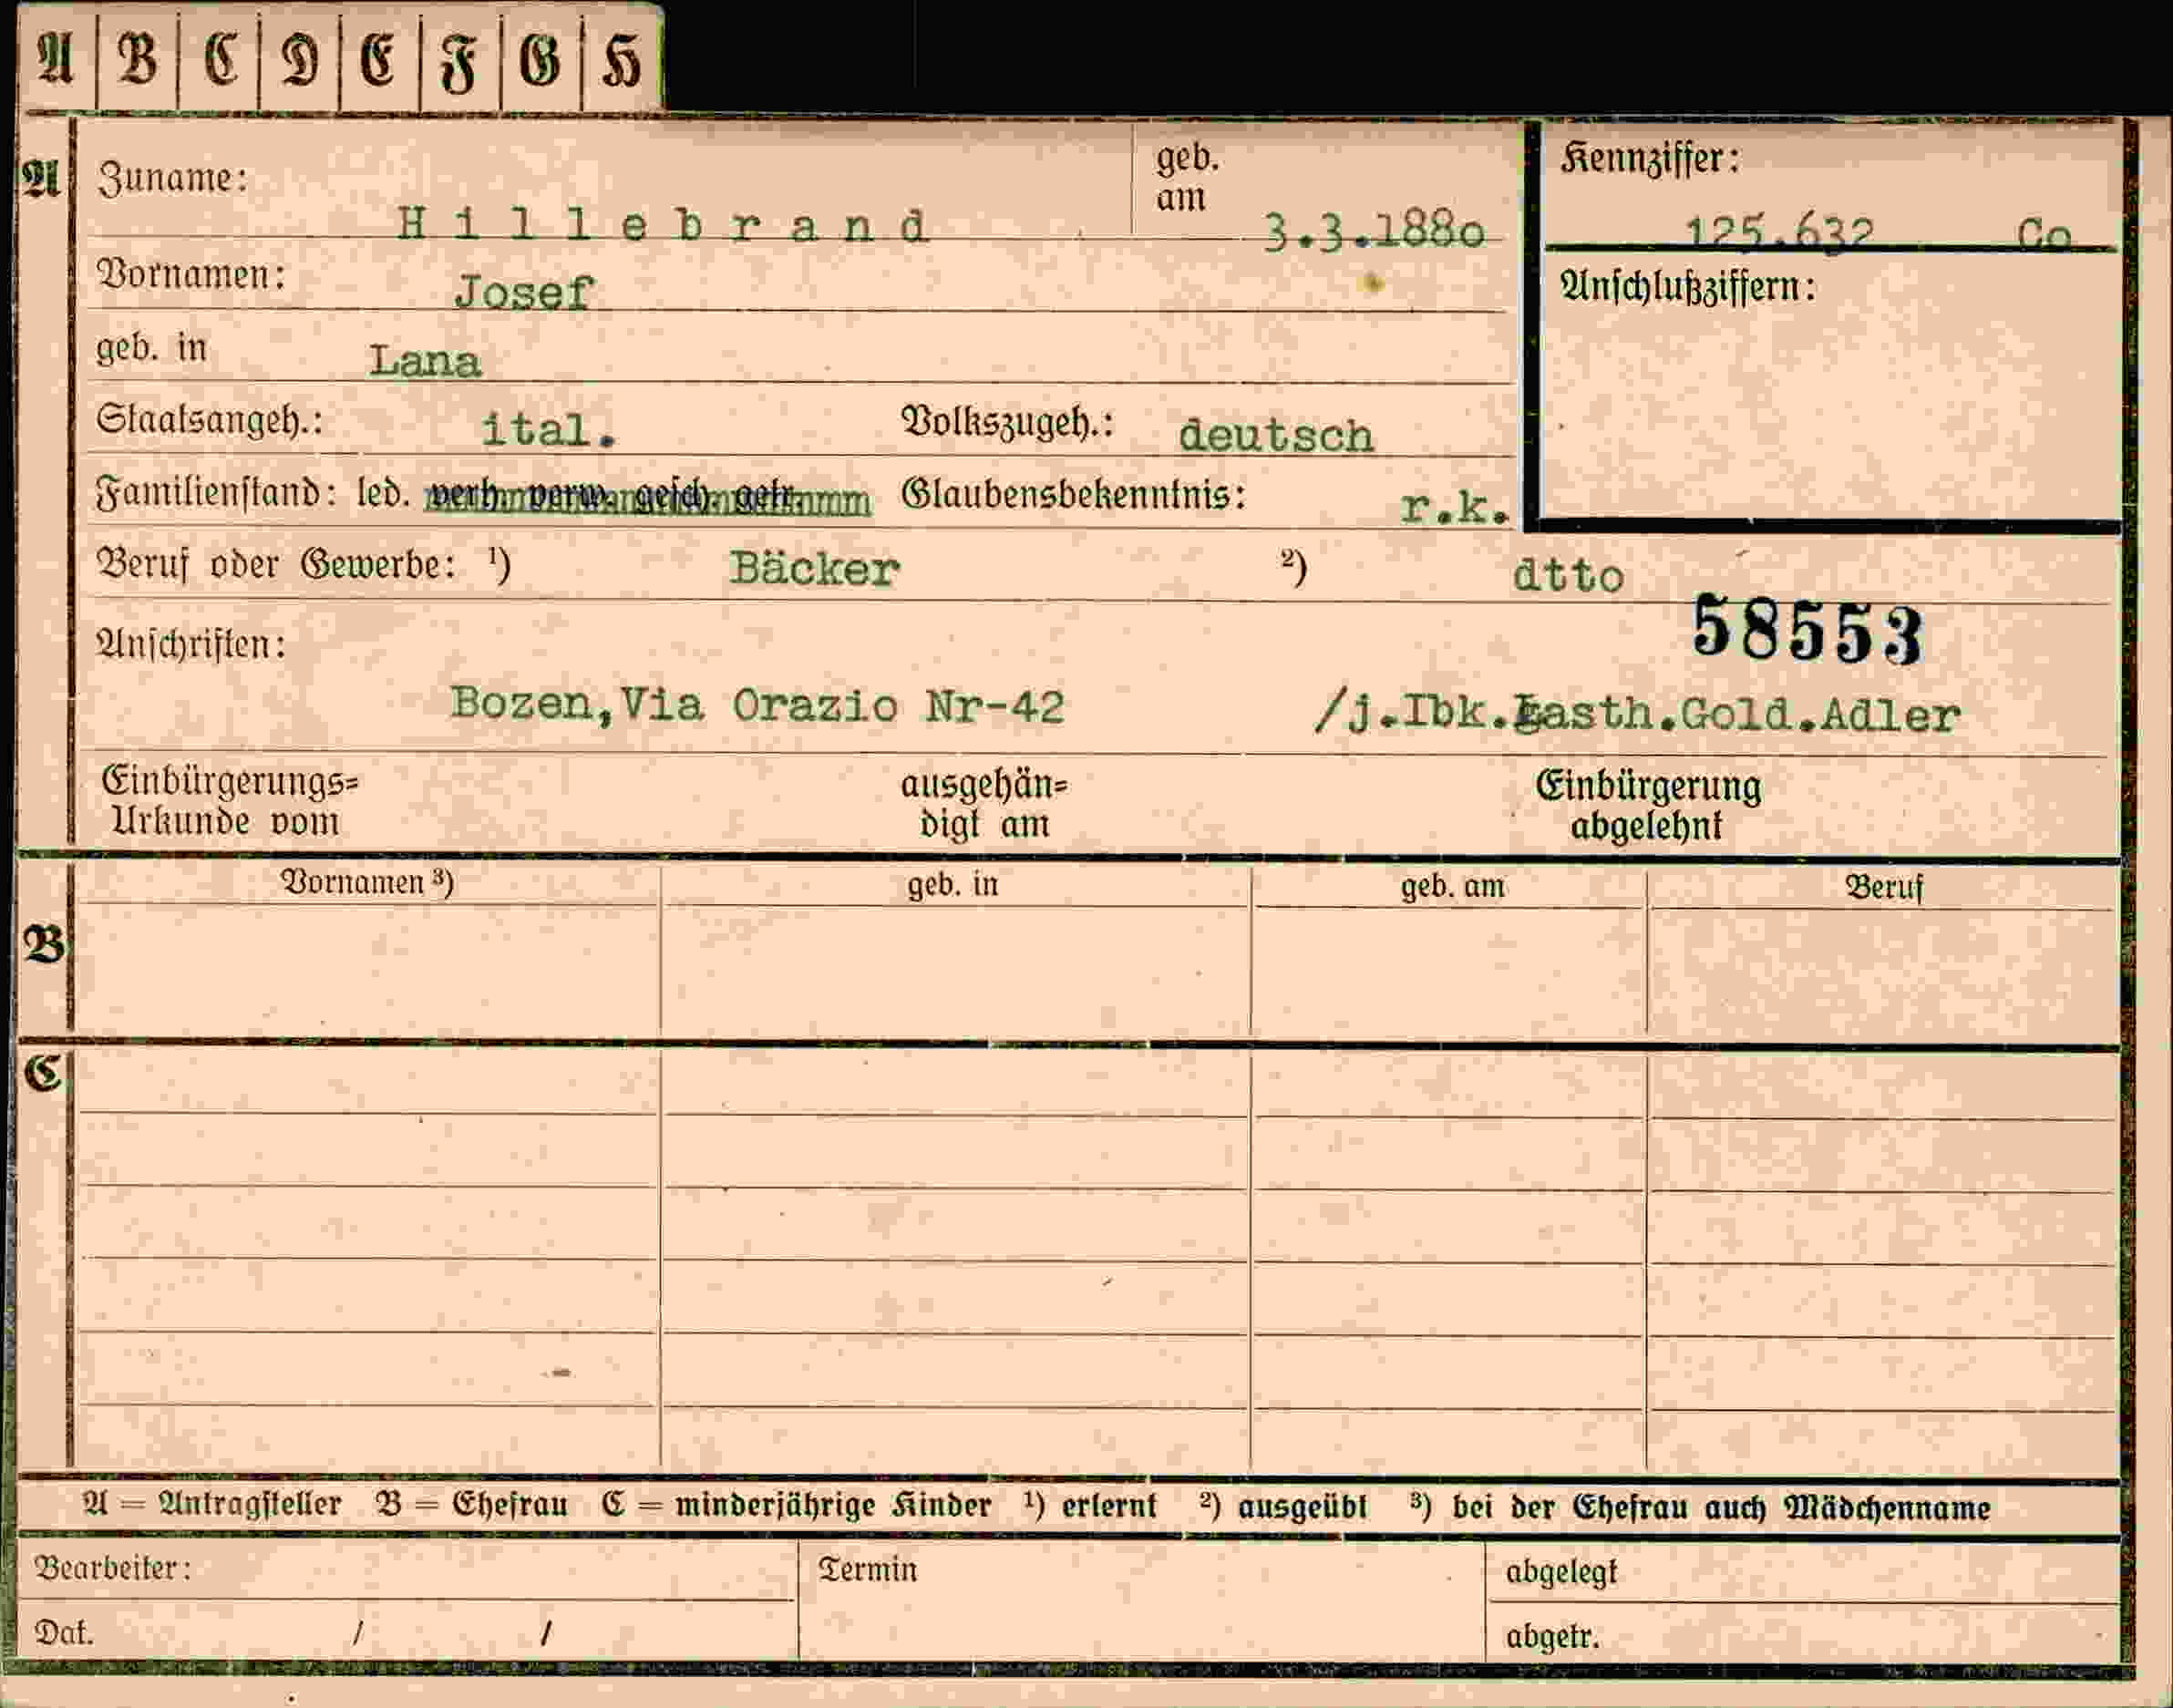 A B C D E F G H
A Zuname: Hillebrand geb. am 3.3.1880
Kennziffer: 125.632 Co
Vornamen: Josef
Anschlußziffern:
geb. in Lana
Staatsangeh.: ital. Volkszugeh.: deutsch
Familienstand: led. verh. verw. gesch. getr. Glaubensbekenntnis: r.k.
Beruf oder Gewerbe: 1) Bäcker 2) dtto
58553
Anschriften:
Bozen,Via Orazio Nr-42 /j.Ibk.Gasth.Gold.Adler
Einbürgerungs= ausgehän= Einbürgerung
Urkunde vom digt am abgelehnt
Vornamen 3) geb. in geb. am Beruf
B
C
A = Antragsteller B = Ehefrau C = minderjährige Kinder 1) erlernt 2) ausgeübt 3) bei der Ehefrau auch Mädchenname
Bearbeiter: Termin abgelegt
Dat. / / abgetr.